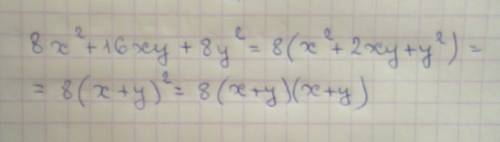 8x²+16xy+8y²=8(x²+2xy+y²)=
=8(x+y)²=8(x+y)(x+y)